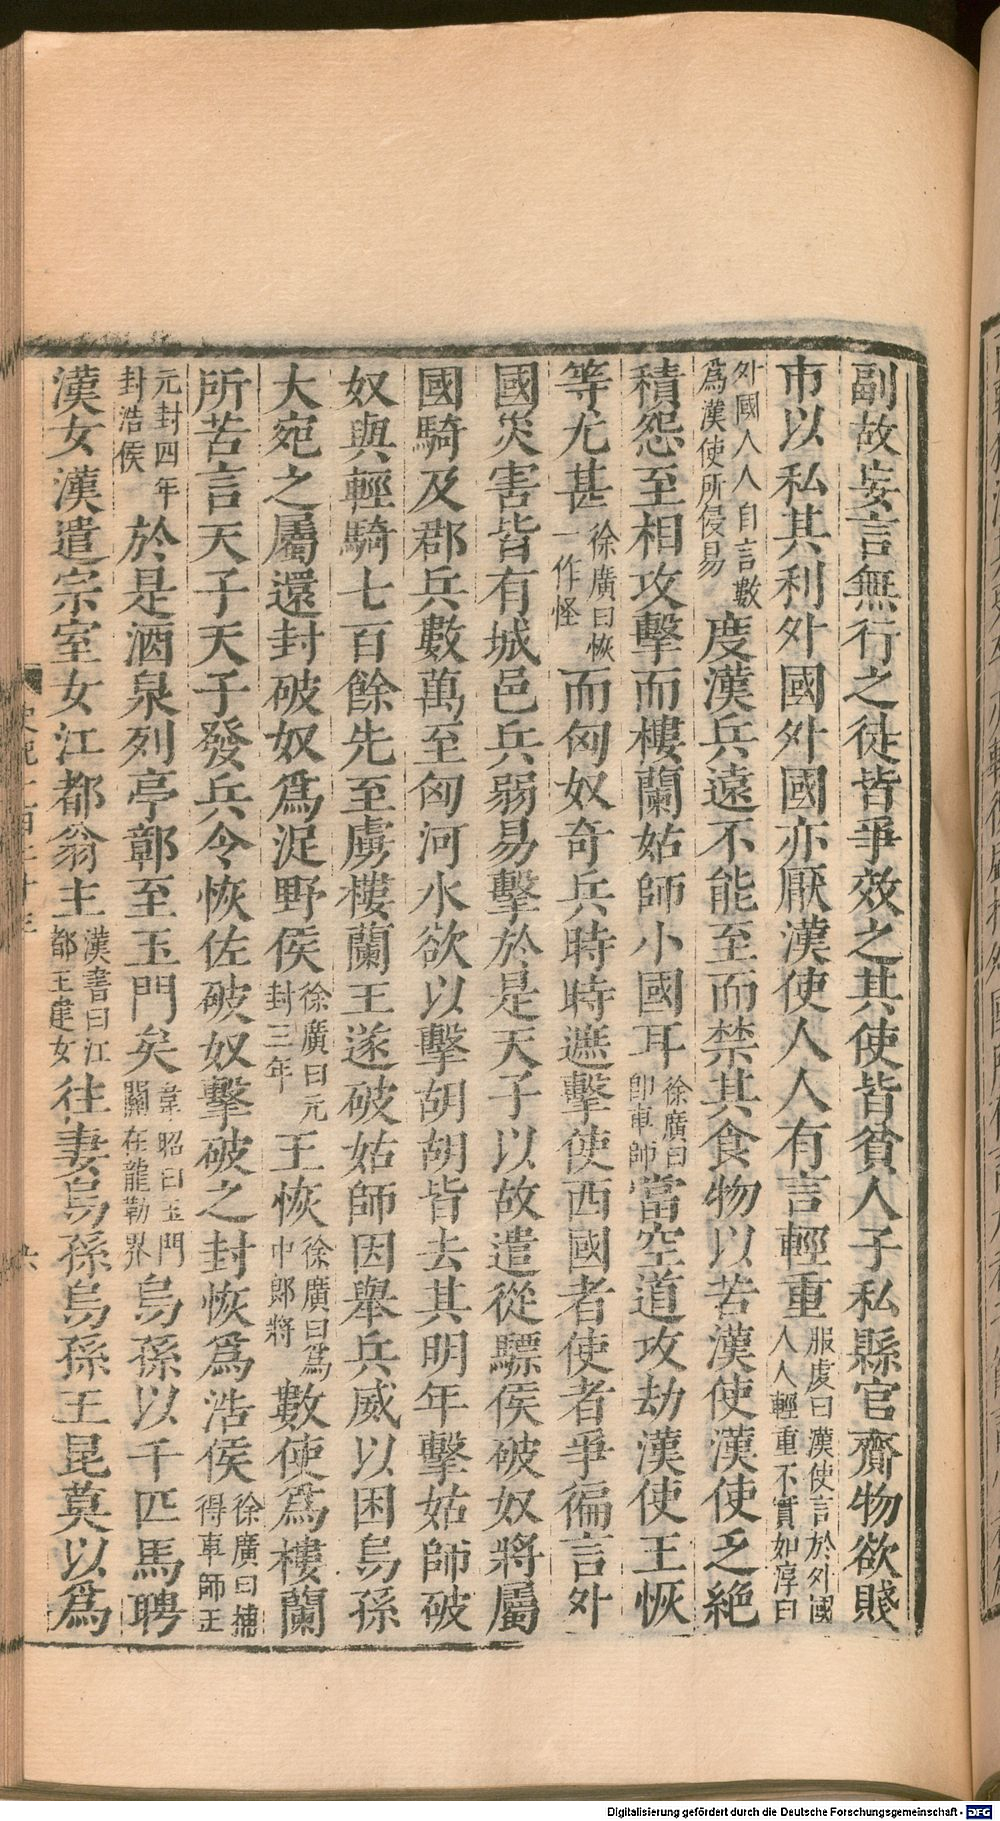 副故妄言無行之徒皆爭效之其使皆貧人子私縣官齎物欲賤
市以私其利外國外國亦厭漢使人人有言輕重服虔曰漢使言於外國人人輕重不實如淳曰
外國人人自言數爲漢使所侵易度漢兵遠不能至而禁其食物以苦漢使漢使乏絶
積怨至相攻擊而樓蘭姑師小國耳徐廣曰卽車師當空道攻劫漢使王恢
等尤甚徐廣曰恢一作怪而匈奴奇兵時時遮擊使西國者使者爭徧言外
國災害皆有城邑兵弱易擊於是天子以故遣從驃侯破奴將屬
國騎及郡兵數萬至匈河水欲以擊胡胡皆去其明年擊姑師破
奴與輕騎七百餘先至虜樓蘭王遂破姑師因舉兵威以困烏孫
大宛之屬還封破奴爲浞野侯徐廣曰元封三年王恢徐廣曰爲中郎將數使爲樓蘭
所苦言天子天子發兵令恢佐破奴擊破之封恢爲浩侯徐廣曰捕得車師王
元封四年封浩侯於是酒泉列亭鄣至玉門矣韋昭曰玉門關在龍勒界烏孫以千匹馬聘
漢女漢遣宗室女江都翁主漢書曰江都王建女往妻烏孫烏孫王昆莫以爲
史記一百二十三
六
Digitalisierung gefördert durch die Deutsche Forschungsgemeinschaft - DFG